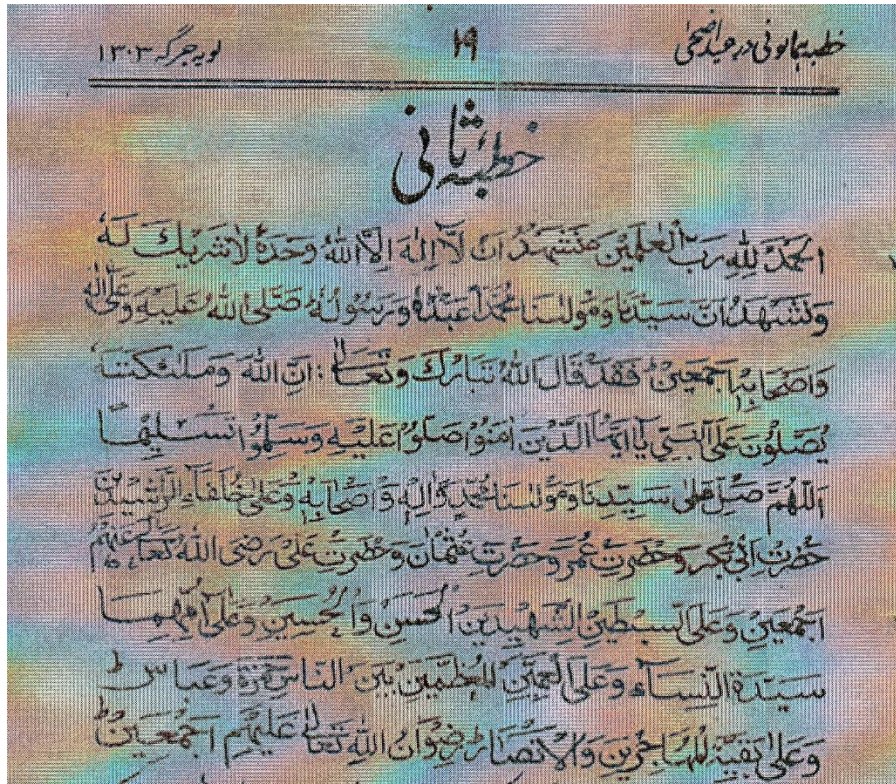 خطبه همایونی در عید اضحی ۱۹ لویه جرگه ۱۳۰۳
خطبهٔ ثانی
اَلْحَمْدُ لِلّٰهِ رَبِّ الْعٰلَمِیْنَ وَنَشْهَدُ اَنْ لَّا اِلٰهَ اِلَّا اللّٰهُ وَحْدَهٗ لَاشَرِیْكَ لَهٗ
وَنَشْهَدُ اَنَّ سَیِّدَنَا وَمَوْلٰىنَا مُحَمَّدًا عَبْدُهٗ وَرَسُوْلُهٗ صَلَّی اللّٰهُ عَلَیْهِ وَعَلٰی اٰلِهٖ
وَاَصْحَابِهٖ اَجْمَعِیْنَ ؕ فَقَدْ قَالَ اللّٰهُ تَبَارَكَ وَتَعَالٰی : اِنَّ اللّٰهَ وَمَلٰٓئِكَتَهٗ
یُصَلُّوْنَ عَلَی النَّبِیِّ یٰٓا اَیُّهَا الَّذِیْنَ اٰمَنُوْا صَلُّوْا عَلَیْهِ وَسَلِّمُوْا تَسْلِیْمًا
اَللّٰهُمَّ صَلِّ عَلٰی سَیِّدِنَا وَمَوْلٰىنَا مُحَمَّدٍ وَّاٰلِهٖ وَاَصْحَابِهٖ وَعَلٰی خُلَفَآءِ الرَّاشِدِیْنَ
حَضْرَتِ اَبِیْ بَكْرٍ وَحَضْرَتِ عُمَرَ وَحَضْرَتِ عُثْمَانَ وَحَضْرَتِ عَلِیْ رَضِیَ اللّٰهُ تَعَالٰی عَنْهُمْ
اَجْمَعِیْنَ وَعَلَی السِّبْطَیْنِ الشَّهِیْدَیْنِ الْحَسَنِ وَالْحُسَیْنِ وَعَلٰی اُمِّهِمَا
سَیِّدَةِ النِّسَآءِ وَعَلَی الْعَمَّیْنِ الْمُعَظَّمَیْنِ بَیْنَ النَّاسِ حَمْزَةَ وَعَبَّاسٍ ؕ
وَعَلٰی بَقِیَّةِ الْمُهَاجِرِیْنَ وَالْاَنْصَارِ رِضْوَانُ اللّٰهِ تَعَالٰی عَلَیْهِمْ اَجْمَعِیْنَ ؕ